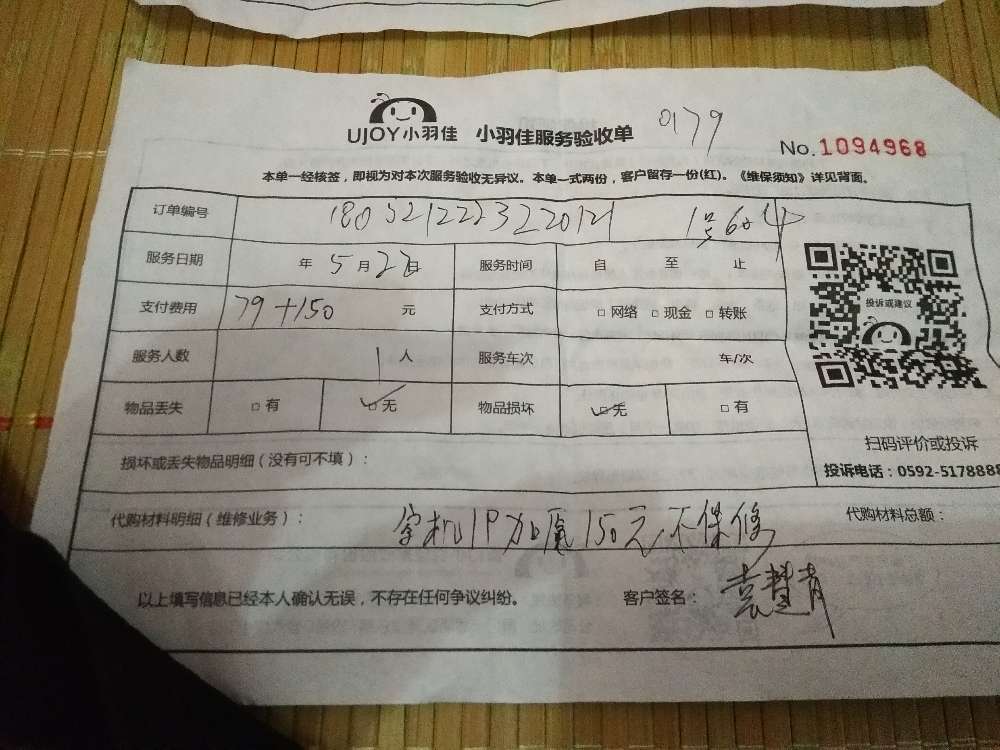 UJOY小羽佳 小羽佳服务验收单 0179
No.1094968
本单一经核签，即视为对本次服务验收无异议。本单一式两份，客户留存一份(红)。《维保须知》详见背面。
订单编号 1805212223220121 1号604
服务日期 年5月22日 服务时间 自 至 止
投诉或建议
支付费用 79+150 元 支付方式 □网络 □现金 □转账
服务人数 1人 服务车次 车/次
物品丢失 □有 □无 物品损坏 □无 □有
扫码评价或投诉
损坏或丢失物品明细（没有可不填）：
投诉电话：0592-5178888
代购材料明细（维修业务）： 空机1P加氟150元不保修 代购材料总额：
以上填写信息已经本人确认无误，不存在任何争议纠纷。 客户签名： 袁慧青